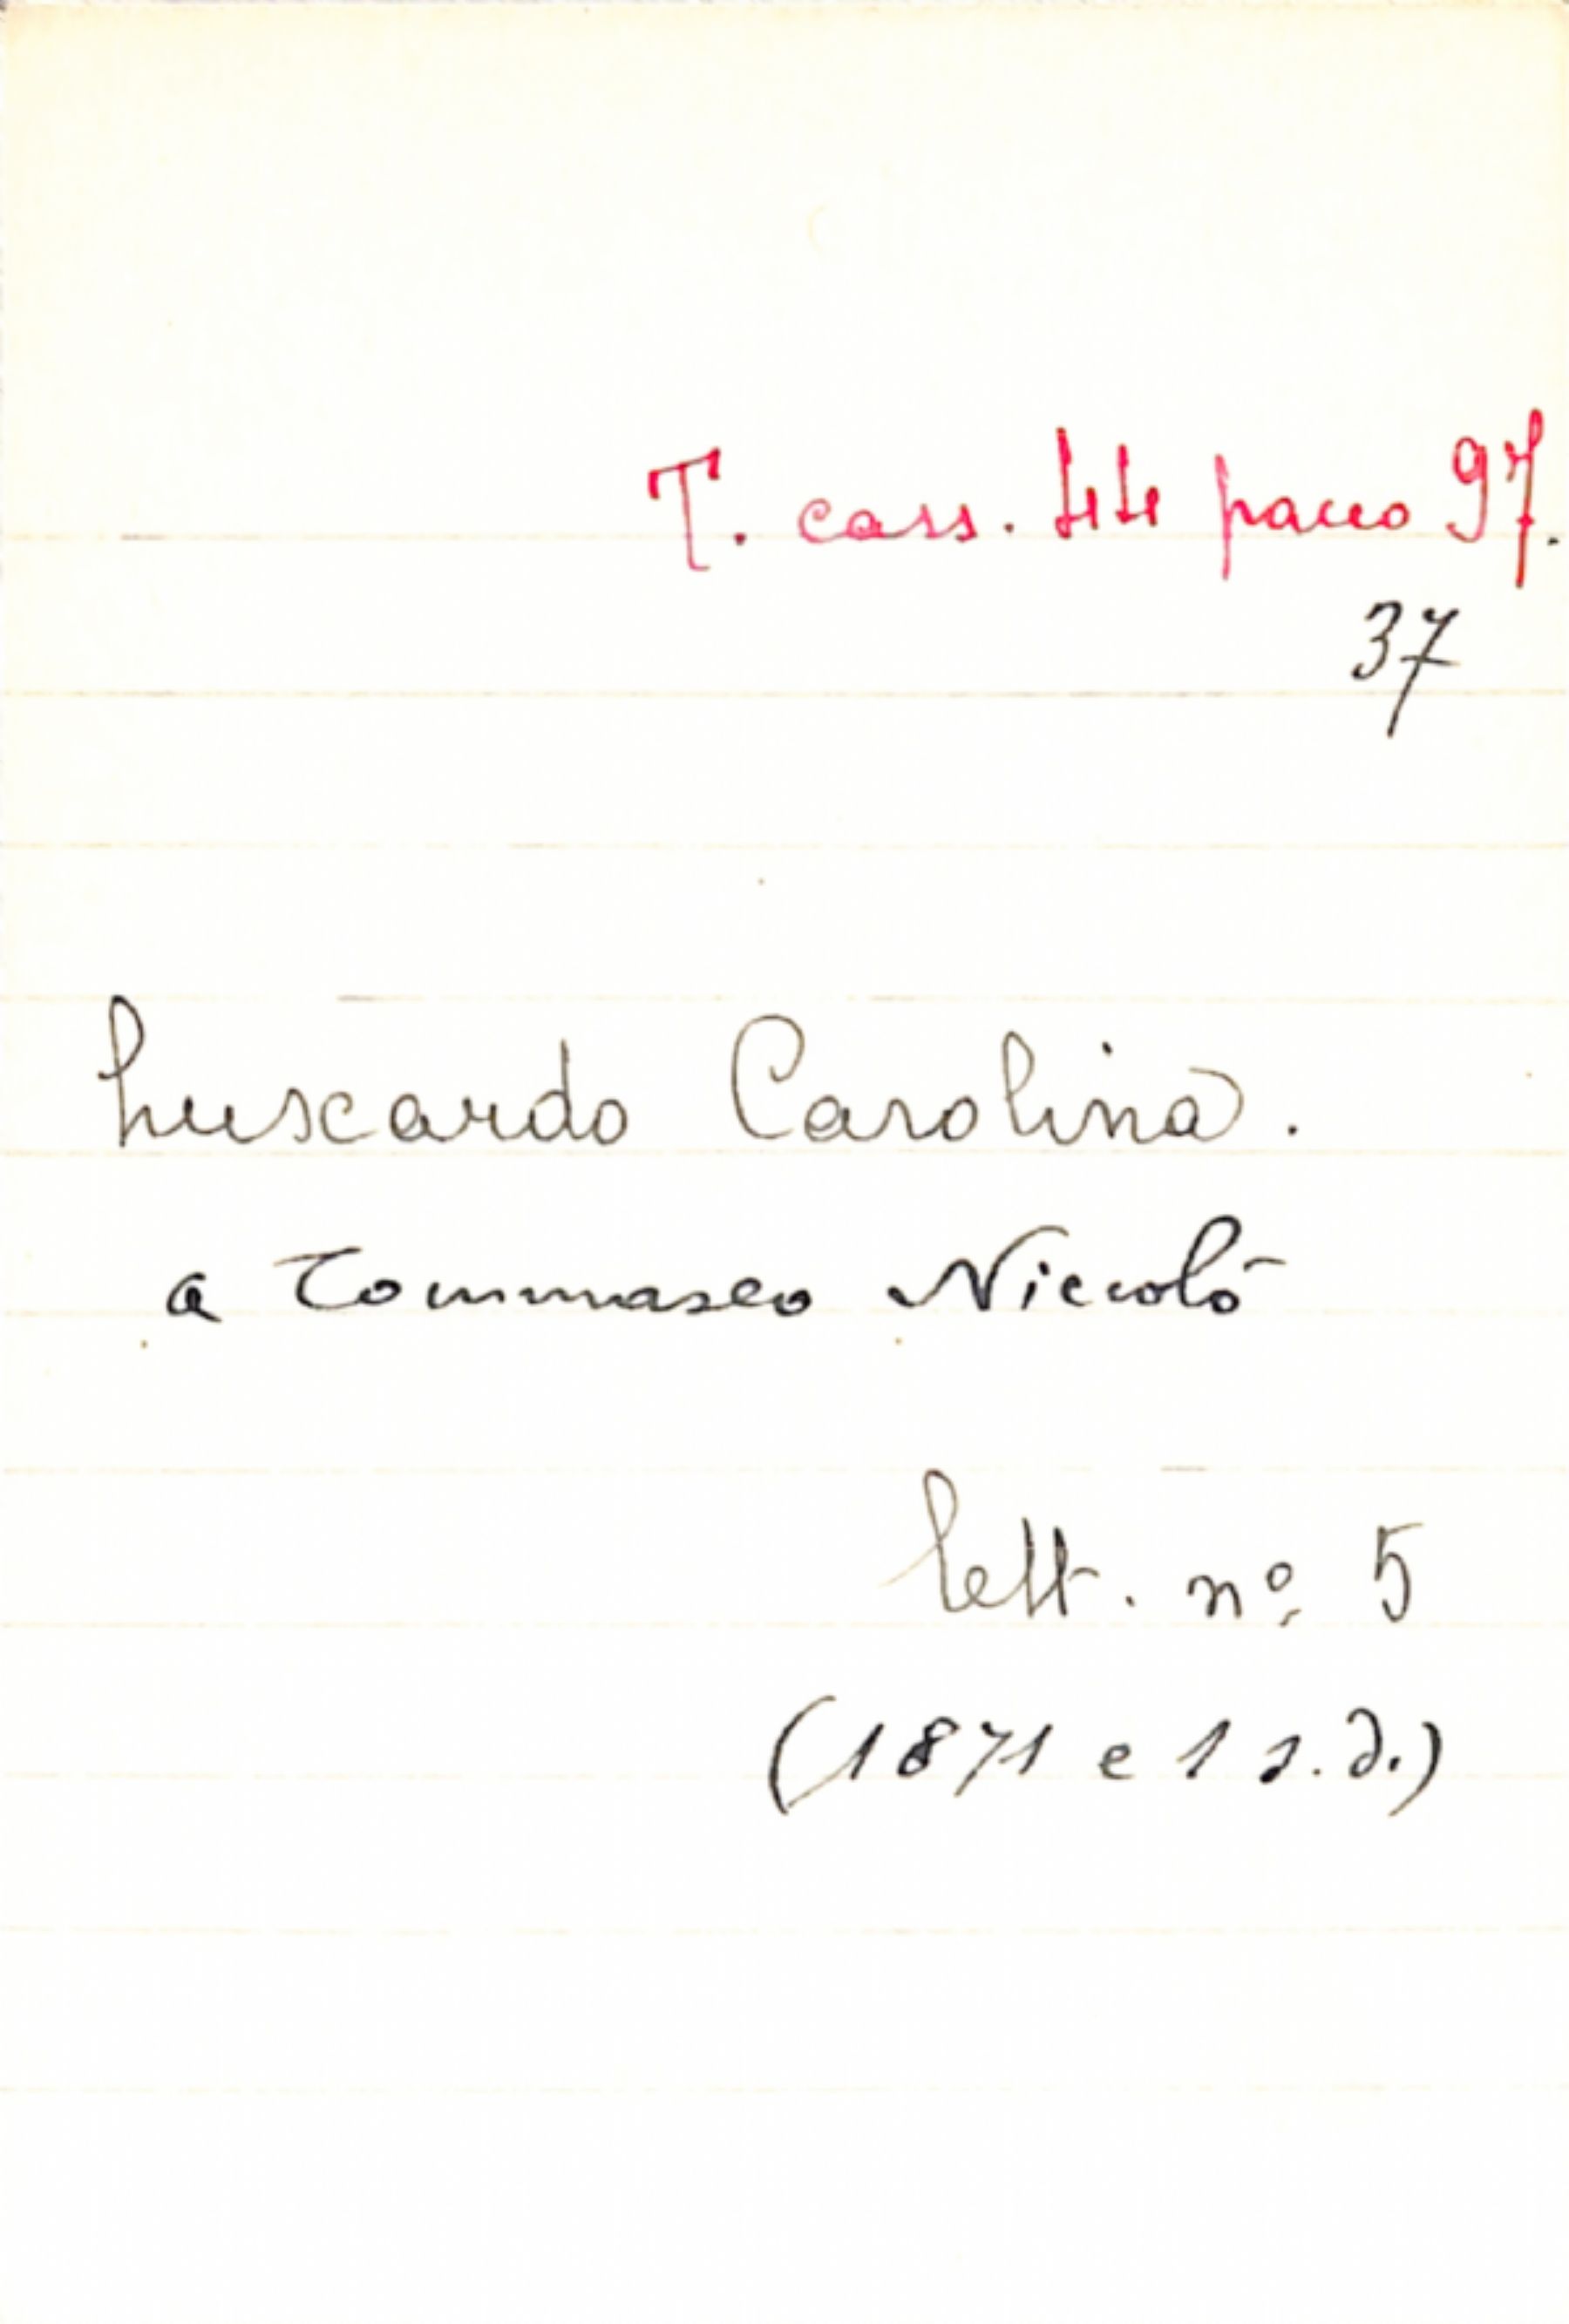 T. cass. 44 pacco 97.
37
Luscardo Carolina.
a Tommaseo Niccolò
lett. nº 5
(1871 e 1 s.d.)